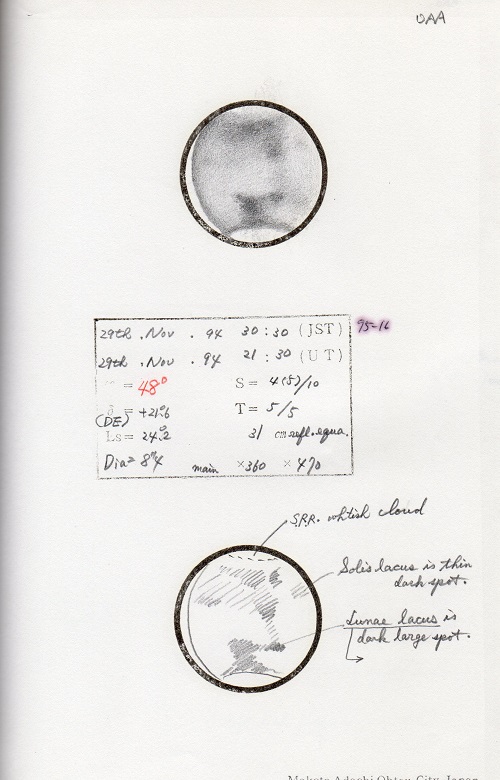 OAA
29th . Nov . 94 30 : 30 (JST)
95-16
29th . Nov . 94 21 : 30 (UT)
= 48° S = 4(5)/10
= +21°.6 T = 5/5
(DE)
Ls = 24°.2 31 cm refl. equa.
Dia = 8".4 main ×360 ×470
S.P.R. whtish cloud
Solis lacus is thin
dark spot.
Lunae lacus is
dark large spot.
Makoto Adachi Ohtsu City, Japan